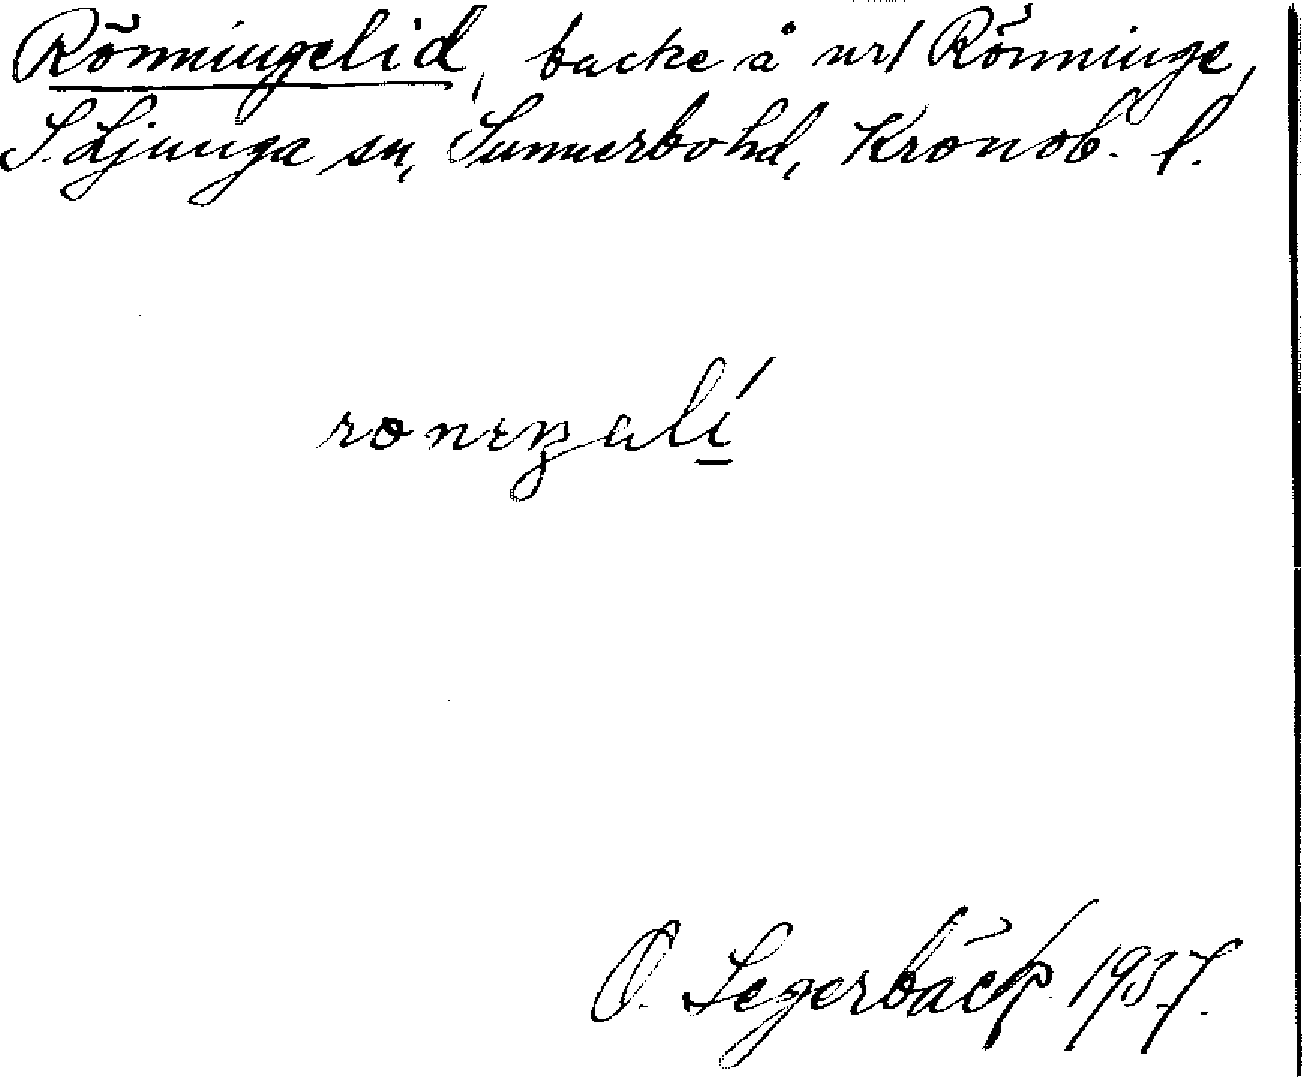 Rönningelid, backe å nr 1 Rönninge,
S. Ljunga sn, Sunnerbo hd, Kronob. l.
O. Segerbäck 1937.